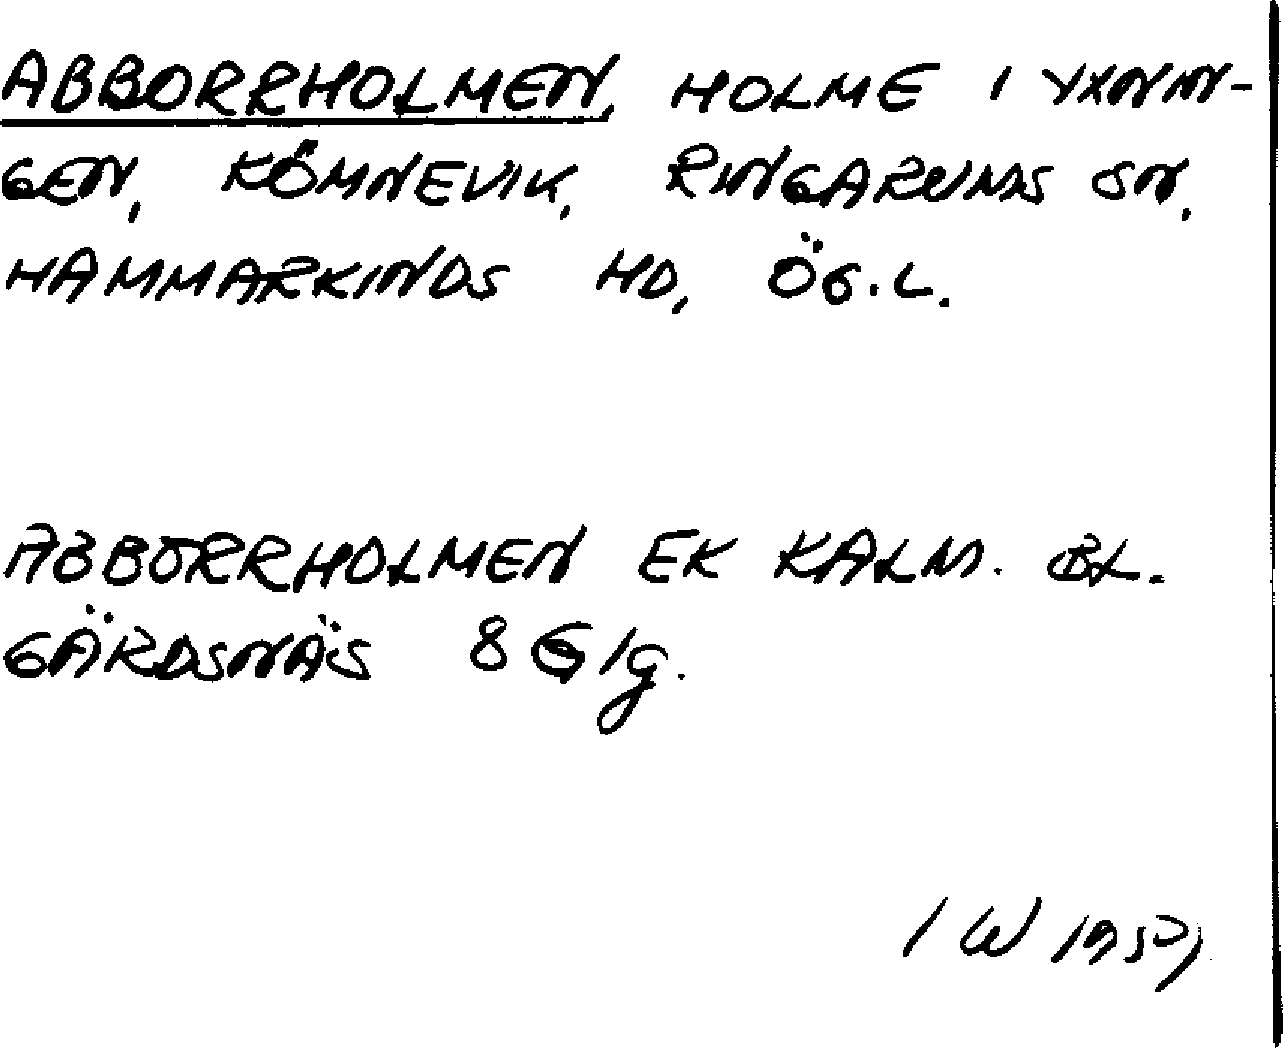 ABBORRHOLMEN, HOLME I YXNIN-
GEN, KÖMNEVIK, RINGARUMS SN,
HAMMARKINDS HD, ÖG.L.
ABBORRHOLMEN EK KALM. BL.
GÄRDSNÄS 8 G 1g.
I W 1957